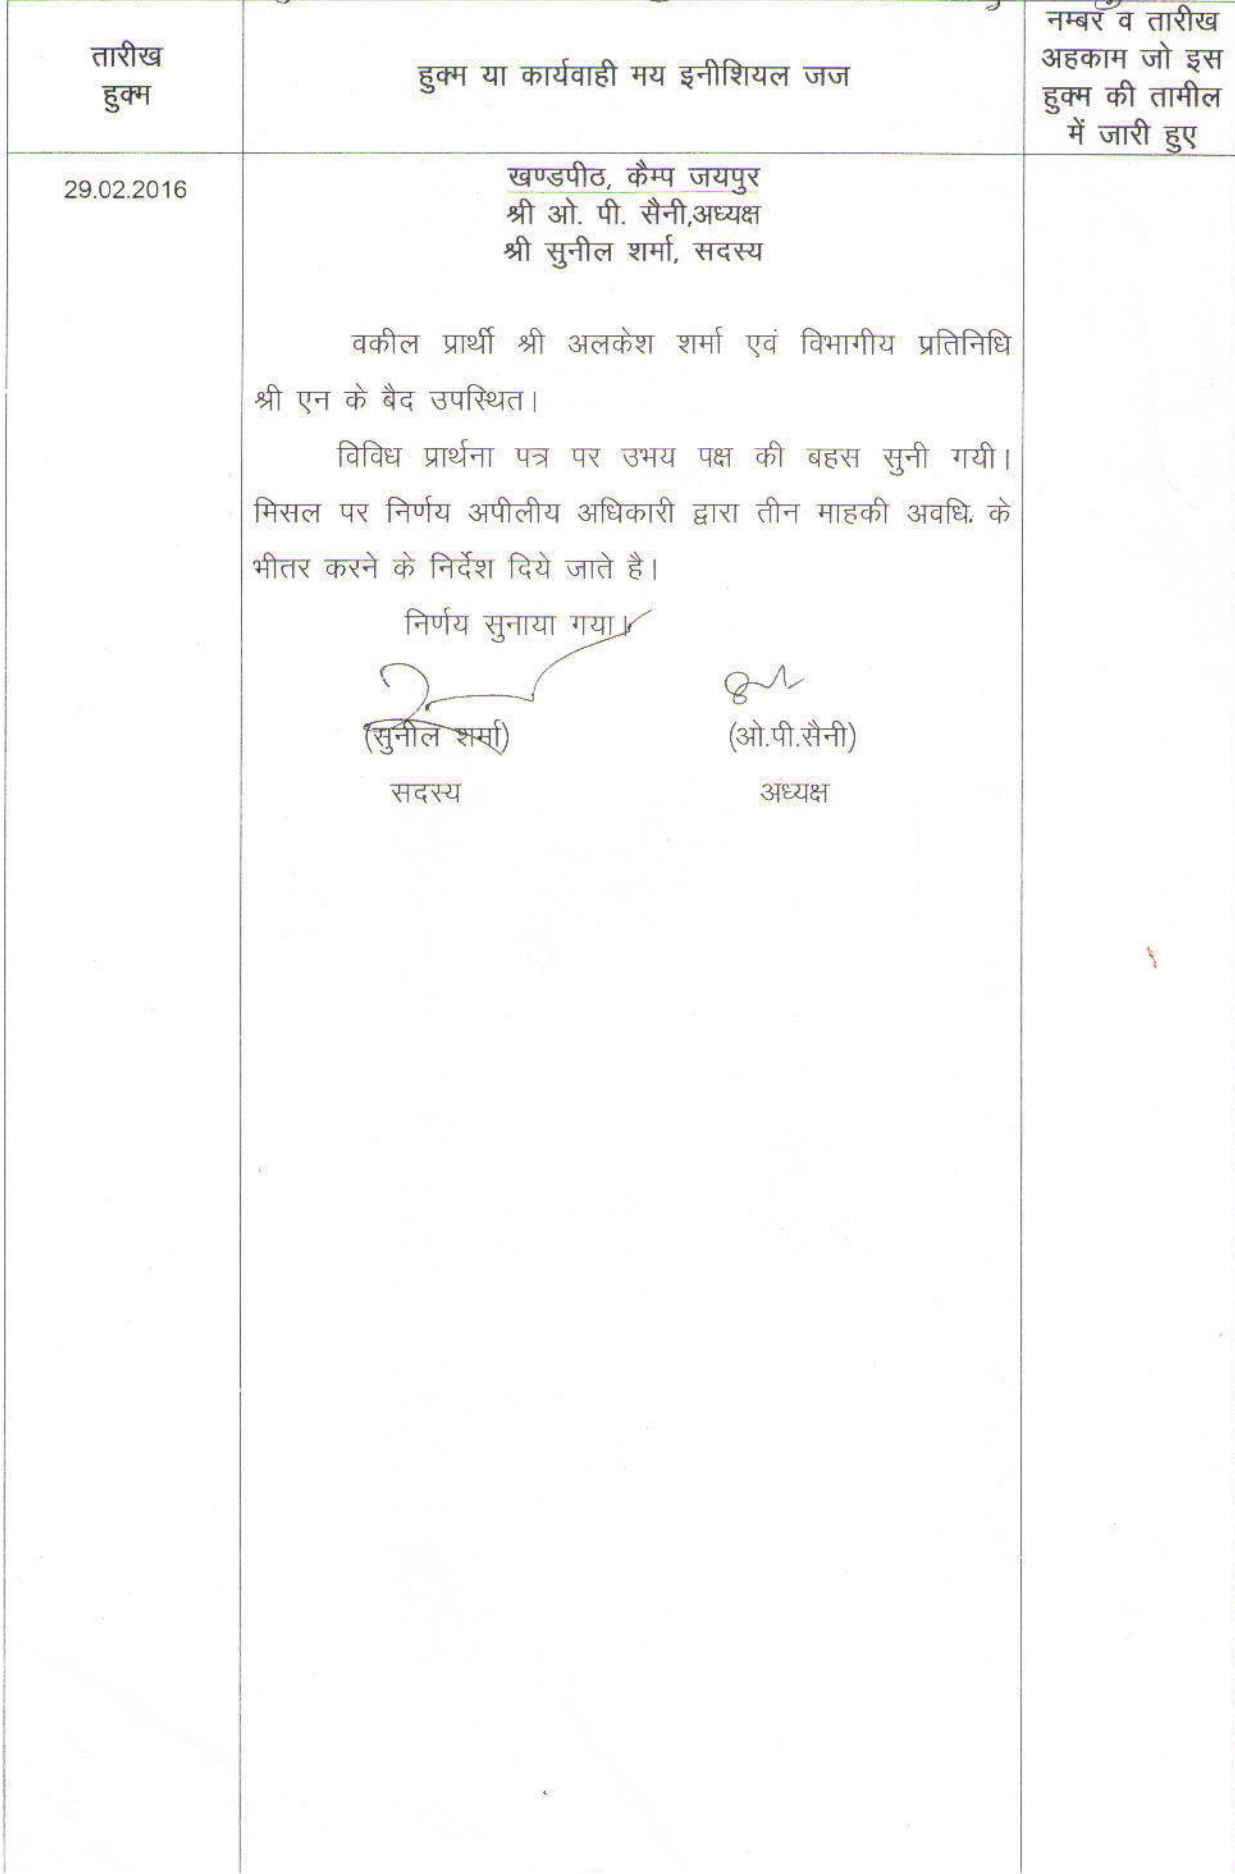 तारीख
हुक्म
हुक्म या कार्यवाही मय इनीशियल जज
नम्बर व तारीख
अहकाम जो इस
हुक्म की तामील
में जारी हुए
29.02.2016
खण्डपीठ, कैम्प जयपुर
श्री ओ. पी. सैनी,अध्यक्ष
श्री सुनील शर्मा, सदस्य
वकील प्रार्थी श्री अलकेश शर्मा एवं विभागीय प्रतिनिधि
श्री एन के बैद उपस्थित।
विविध प्रार्थना पत्र पर उभय पक्ष की बहस सुनी गयी।
मिसल पर निर्णय अपीलीय अधिकारी द्वारा तीन माहकी अवधि. के
भीतर करने के निर्देश दिये जाते है।
निर्णय सुनाया गया।
(सुनील शर्मा) (ओ.पी.सैनी)
सदस्य अध्यक्ष